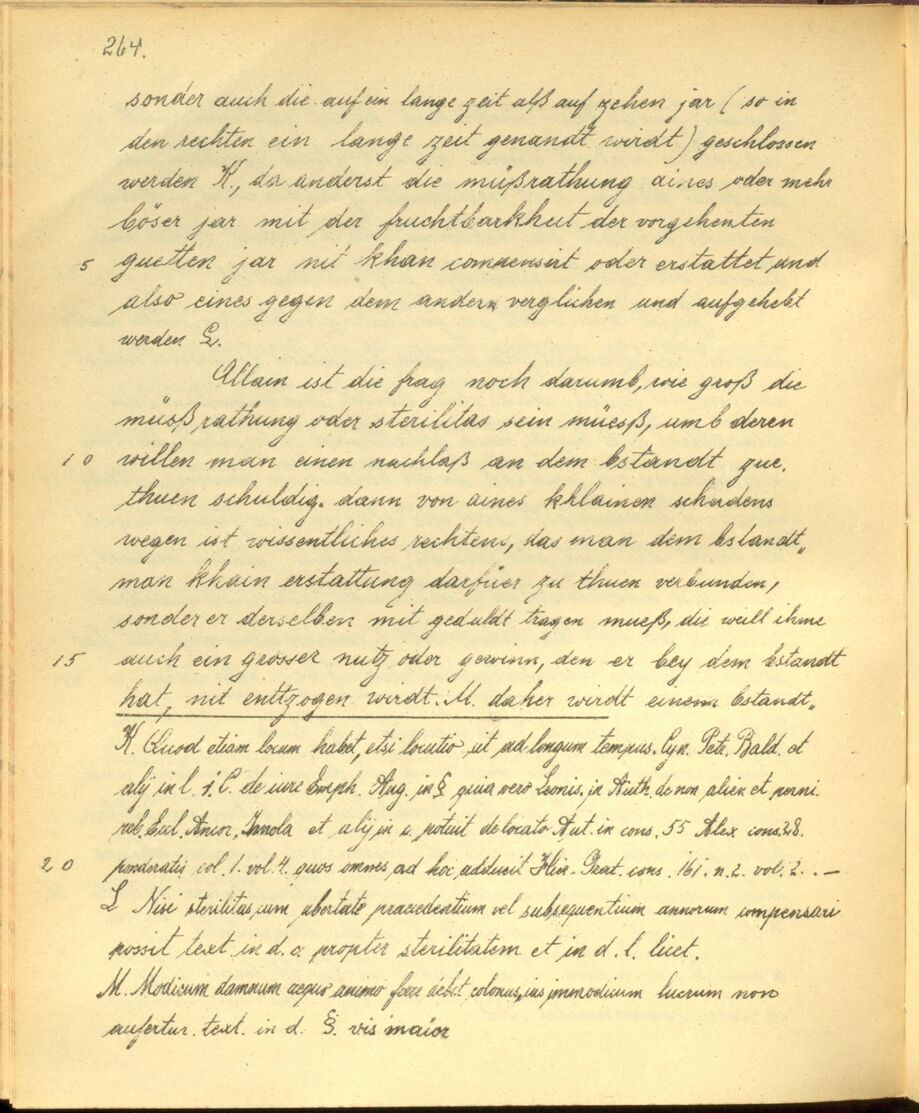 264.
sonder auch die auf ein lange zeit alß auf zehen jar (so in
den rechten ein lange zeit genandt wirdt) geschlossen
werden K., da anderst die müßrathung aines oder mehr
böser jar mit der fruchtbarkheit der vorgehenten
5 guetten jar nit khan compensirt oder erstattet und
also eines gegen dem andern verglichen und aufgehebt
werden L.
Allain ist die frag noch darumb, wie groß die
müsßrathung oder sterilitas sein müesß, umb deren
10 willen man einen nachlaß an dem bstandt zue,
thuen schuldig. dann von aines khlainen schadens
wegen ist wissentliches rechtens, das man dem bstandt„
man khain erstattung darfüer zu thuen verbunden,
sonder er derselben mit geduldt tragen mueß, die weill ihme
15 auch ein grosser nutz oder gewinn, den er bey dem bstandt
hat, nit enttzogen wirdt. M. daher wirdt einem bstandt„
K. Quod etiam locum habet, etsi locatio sit ad longum tempus. Cyn. Pete. Bald. et
alij in l. 1. C. de iure Emph. Aug. in § quia vero Leonis, in Auth. de non alien. et permi.
reb. Eccl. Ancor, Imola et alij in c. potuit de locato Aut. in cons. 55 Alex cons. 28.
20 ponderatis col. 1. vol. 4. quos omnes ad hoc adducit Hier. Grat. cons. 161. n. 2. vol. 2. . —
L Nisi sterilitas cum ubertate praecedentium vel subsequentium annorum compensari
possit text. in d. c. propter sterilitatem et in d. l. licet.
M. Modicum damnum aequo animo ferre debet colonus, cui immodicum lucrum non
aufertur. text. in d. §. vis maior